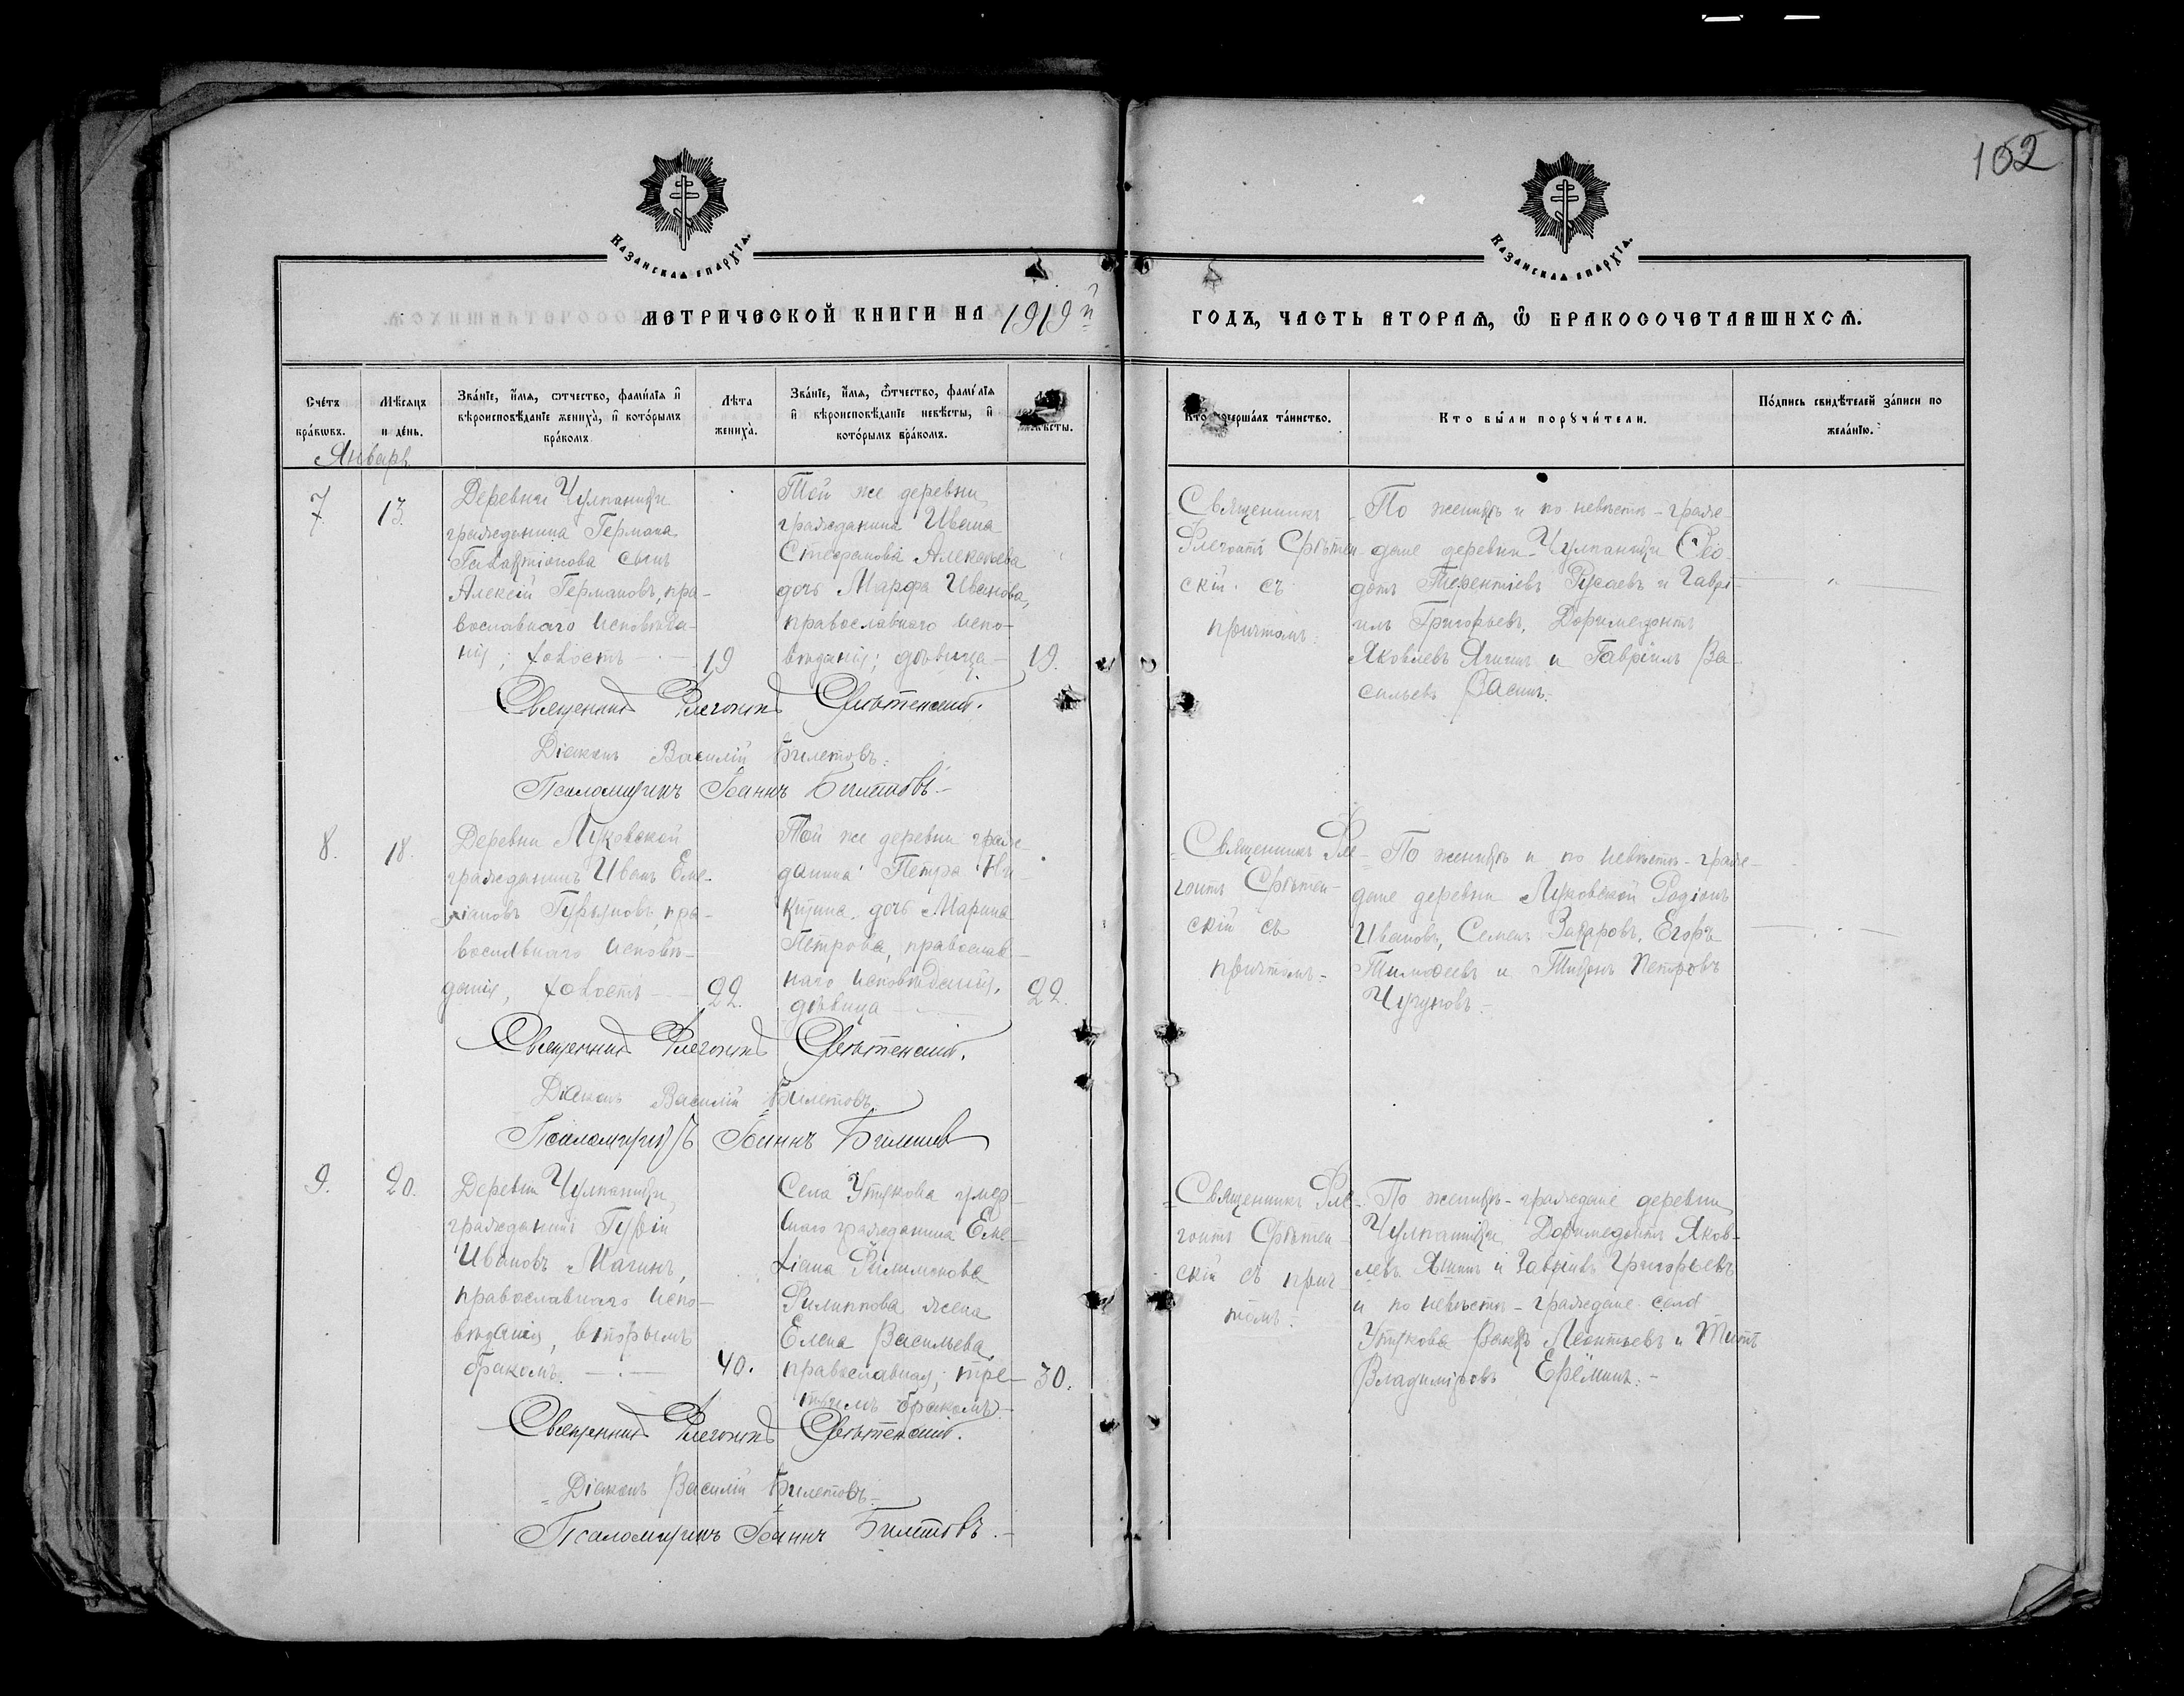 102
Казанская епархїа.
Казанская епархїа.
МЕТРИЧЕСКОЙ КНИГИ НА 1919й
ГОДЪ, ЧАСТЬ ВТОРАЯ, Ѽ БРАКОСОЧЕТАВШИХСЯ.
Счетъ бракѡвъ.
Мѣсяцъ и день.
Званїе, имя, ѡтчество, фамилїя и вѣроисповѣданїе жениха, и которымъ бракомъ.
Лѣта жениха.
Званїе, имя, ѿчество, фамилїя и вѣроисповѣданїе невѣсты, и которымъ бракомъ.
невѣсты.
Кто совершалъ таинство.
Кто были порꙋчители.
Подпись свидѣтелей записи по желанїю.
Январь
7.
13.
Деревни Чулпанихи
гражданина Германа
сынъ
Алексѣй Германовъ, пра-
вославнаго исповѣда-
нія; холостъ
19
Той же деревни
гражданина Ивана
Стефанова Алексѣева
дочь Марфа Иванова,
православнаго испо-
вѣданія; дѣвица
19.
Священникъ
Флегонтъ Срѣтен-
скій съ
причтомъ.
По женихѣ и по невѣстѣ - граж-
дане деревни Чулпанихи Ѳео-
дотъ Терентіевъ Русаевъ и Гаврі-
илъ Григорьевъ, Доримедонтъ
Яковлевъ Ягинъ и Гавріилъ Ва-
сильевъ Васинъ.
Священникъ Флегонтъ Срѣтенскій.
Діаконъ Василій Билетовъ.
Псаломщикъ Іоаннъ Билетовъ
8.
18.
Деревни Луковской
гражданинъ Иванъ Еме-
ліановъ Гурьяновъ, пра-
вославнаго исповѣ-
данія, холостъ
22.
Той же деревни граж-
данина Петра Ни-
китина дочь Марина
Петрова, православ-
наго исповѣданія,
дѣвица
22.
Священникъ Фле-
гонтъ Срѣтен-
скій съ
причтомъ.
По женихѣ и по невѣстѣ - граж-
дане деревни Луковской Родіонъ
Ивановъ, Семенъ Захаровъ, Егоръ
Тимоѳеевъ и Тихонъ Петровъ
Чугуновъ
Священникъ Флегонтъ Срѣтенскій.
Діаконъ Василій Билетовъ
Псаломщикъ Іоаннъ Билетовъ
9.
20.
Деревни Чулпанихи
гражданинъ Гурій
Ивановъ Магинъ,
православнаго испо-
вѣданія, вторымъ
бракомъ.
40.
Села Утякова умер-
шаго гражданина Еме-
ліана Филимонова
Филиппова жена
Елена Васильева,
православная; тре-
тьимъ бракомъ
30.
Священникъ Фле-
гонтъ Срѣтен-
скій съ прич-
томъ.
По женихѣ - граждане деревни
Чулпанихи Доримедонтъ Яков-
левъ Ягинъ и Гавріилъ Григорьевъ
и по невѣстѣ - граждане села
Утякова Леонтьевъ и Титъ
Владиміровъ Ерёминъ.
Священникъ Флегонтъ Срѣтенскій.
Діаконъ Василій Билетовъ
Псаломщикъ Іоаннъ Билетовъ.